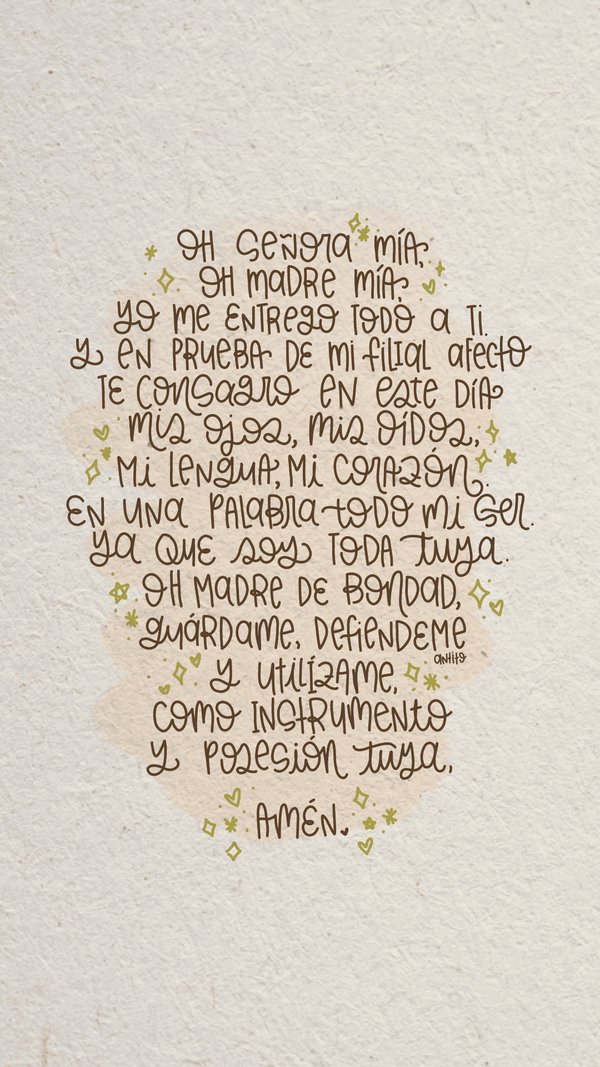 OH SEÑORA MÍA,
OH MADRE MÍA,
YO ME ENTREGO TODO A TI.
Y EN PRUEBA DE MI FILIAL AFECTO
TE CONSAGRO EN ESTE DÍA
MIS OJOS, MIS OÍDOS,
MI LENGUA, MI CORAZÓN.
EN UNA PALABRA TODO MI SER.
YA QUE SOY TODA TUYA.
OH MADRE DE BONDAD,
GUÁRDAME, DEFIENDEME
antito
Y UTILÍZAME,
COMO INSTRUMENTO
Y POSESIÓN TUYA,
AMÉN.